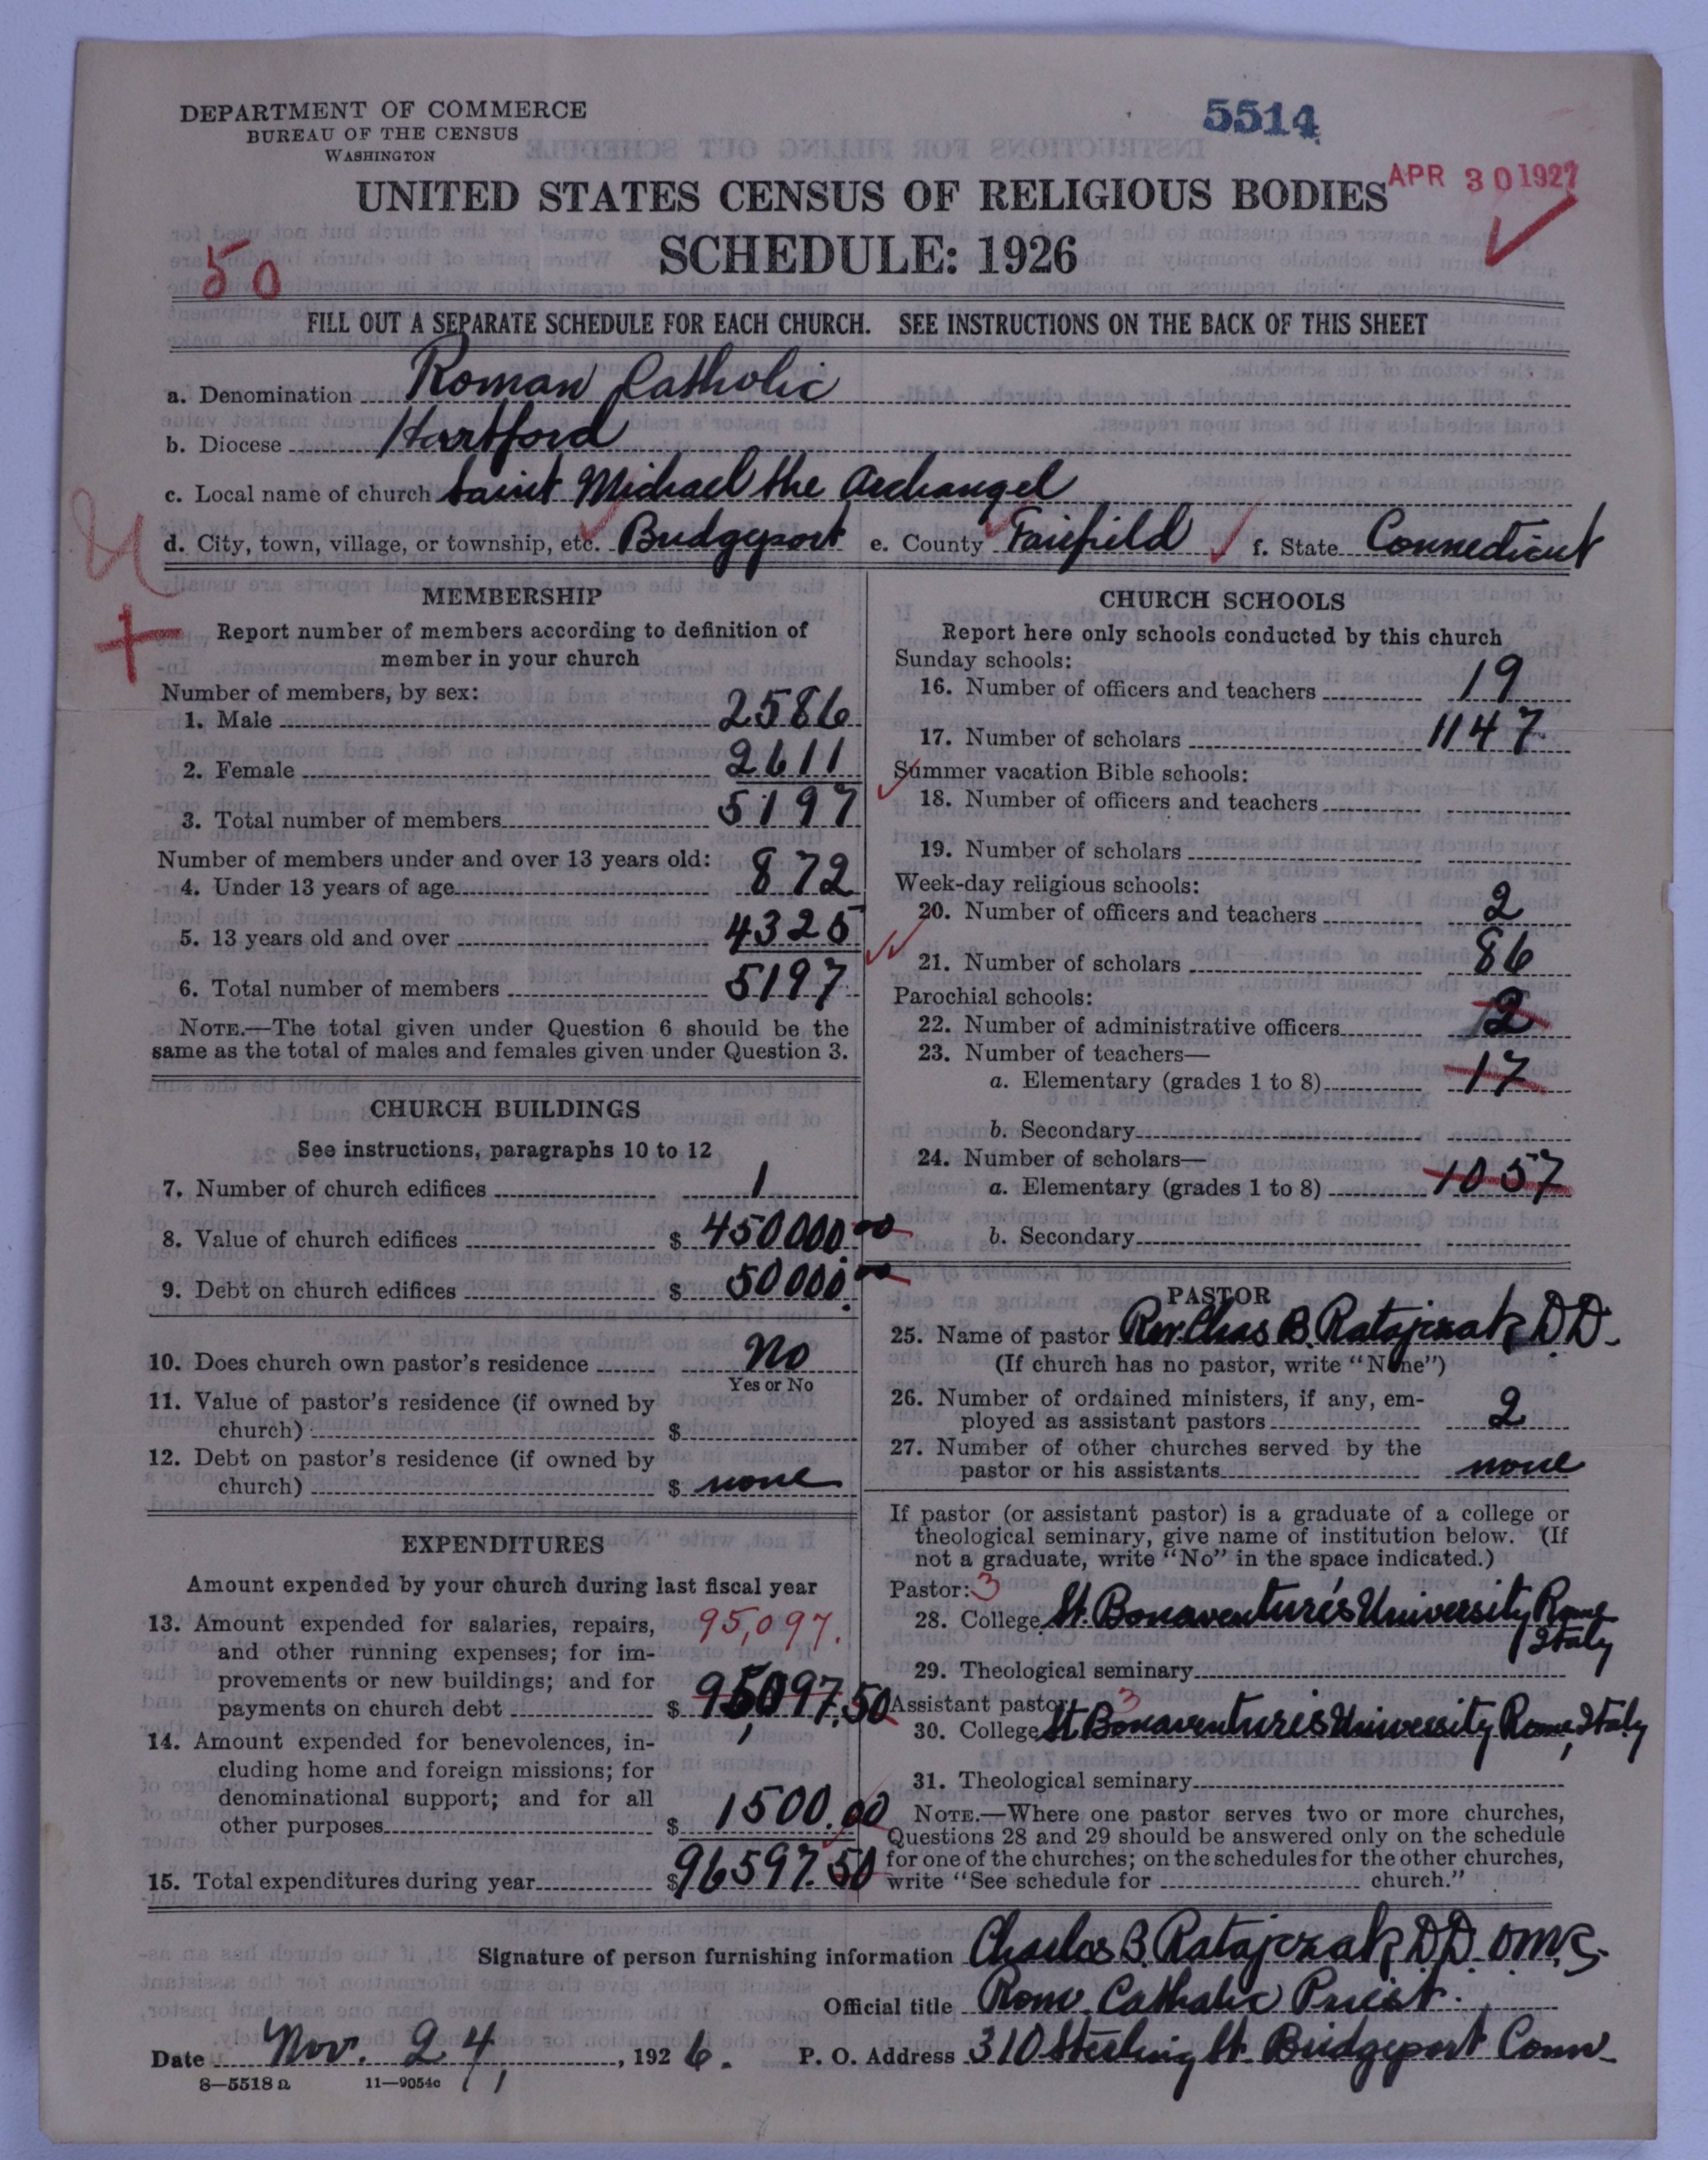 DEPARTMENT OF COMMERCE
BUREAU OF THE CENSUS
WASHINGTON
5514
APR 30 1927
UNITED STATES CENSUS OF RELIGIOUS BODIES
SCHEDULE: 1926
50
FILL OUT A SEPARATE SCHEDULE FOR EACH CHURCH. SEE INSTRUCTIONS ON THE BACK OF THIS SHEET
a. Denomination Roman Catholic
b. Diocese Hartford
c. Local name of church Saint Michael the Archangel
d. City, town, village, or township, etc. Bridgeport e. County Fairfield f. State Connecticut
MEMBERSHIP
Report number of members according to definition of
member in your church
Number of members, by sex:
1. Male 2586
2. Female 2611
3. Total number of members 5197
Number of members under and over 13 years old:
4. Under 13 years of age 872
5. 13 years old and over 4325
6. Total number of members 5197
NOTE.—The total given under Question 6 should be the
same as the total of males and females given under Question 3.
CHURCH BUILDINGS
See instructions, paragraphs 10 to 12
7. Number of church edifices 1
8. Value of church edifices $ 450000.00
9. Debt on church edifices $ 50000.00
10. Does church own pastor's residence No
Yes or No
11. Value of pastor's residence (if owned by
church) $
12. Debt on pastor's residence (if owned by
church) $ none
EXPENDITURES
Amount expended by your church during last fiscal year
13. Amount expended for salaries, repairs, 95,097.
and other running expenses; for im-
provements or new buildings; and for
payments on church debt $ 95,097.50
14. Amount expended for benevolences, in-
cluding home and foreign missions; for
denominational support; and for all
other purposes $ 1500.00
15. Total expenditures during year $ 96597.50
CHURCH SCHOOLS
Report here only schools conducted by this church
Sunday schools:
16. Number of officers and teachers 19
17. Number of scholars 1147
Summer vacation Bible schools:
18. Number of officers and teachers
19. Number of scholars
Week-day religious schools:
20. Number of officers and teachers 2
21. Number of scholars 86
Parochial schools:
22. Number of administrative officers 2
23. Number of teachers—
a. Elementary (grades 1 to 8) 17
b. Secondary
24. Number of scholars—
a. Elementary (grades 1 to 8) 1057
b. Secondary
PASTOR
25. Name of pastor Rev. Chas B. Ratajczak D.D.
(If church has no pastor, write "None")
26. Number of ordained ministers, if any, em-
ployed as assistant pastors 2
27. Number of other churches served by the
pastor or his assistants none
If pastor (or assistant pastor) is a graduate of a college or
theological seminary, give name of institution below. (If
not a graduate, write "No" in the space indicated.)
Pastor: 3
28. College St. Bonaventure's University Rome
Italy
29. Theological seminary
Assistant pastor: 3
30. College St Bonaventure's University Rome, Italy
31. Theological seminary
NOTE.—Where one pastor serves two or more churches,
Questions 28 and 29 should be answered only on the schedule
for one of the churches; on the schedules for the other churches,
write "See schedule for church."
Signature of person furnishing information Charles B. Ratajczak D.D. O.M.C.
Official title Rom. Catholic Priest.
Date Nov. 24, 1926. P. O. Address 310 Sterling St. Bridgeport Conn.
8—5518 a 11—9054c